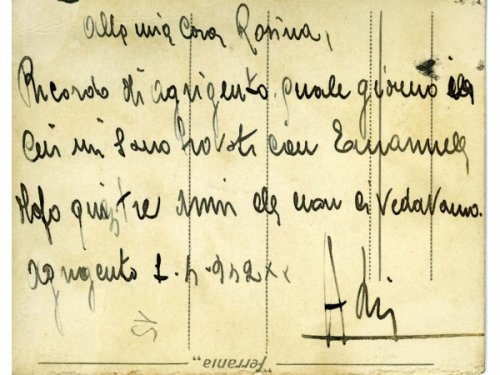 Alla mia Cara Rosina,
Ricordo di agrigento. quale giorno in
Cui mi Sono Trovati con Emanuele
dopo quastre anni che non ci Vedavamo.
Agrigento 1. 5. 942 xx
15
"ferrania"